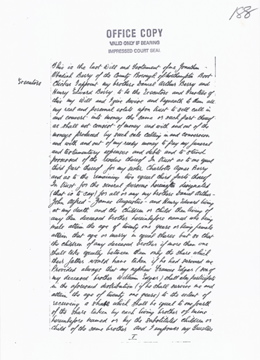 188
OFFICE COPY
VALID ONLY IF BEARING
IMPRESSED COURT SEAL
This is the last Will and Testament of me Jonathan
Berry of the County Borough of Southampton Boot
my brothers Daniel Arthur Berry and
Executors
Henry Edward Berry to be the Executors and Trustees of
this my Will and I give devise and bequeath to them all
my real and personal estate upon trust to sell call in
and convert into money the same or such part thereof
as shall not consist of money and with and out of the
moneys produced by such sale calling in and conversion
and with and out of my ready money to pay my funeral
and testamentary expenses and debts and to stand
possessed of the residue thereof In trust as to one equal
third part thereof for my sister Charlotte Agnes Berry
and as to the remaining two equal third parts thereof
In trust for the several persons hereinafter designated
that is to say for all or any my brothers Daniel Arthur
John Alfred James Augustus and Henry Edward living
at my death and the children or child then living of
any the deceased brother hereinbefore named who being
male attain the age of twenty one years or being female
attain that age or marry in equal shares but so that
the children of any deceased brother if more than one
shall take equally between them only the share which
their father would have taken if he had survived me
Provided always that my nephew Francis Edgar (son of
my deceased brother William Edgar) shall also participate
in the aforesaid distribution (if he shall survive me and
attain the age of twenty one years) to the extent of
receiving a share which shall be equal to one fourth
of the share taken by each living brother of mine
hereinbefore named or by the substituted children or
child of the same brother And I empower my Trustees